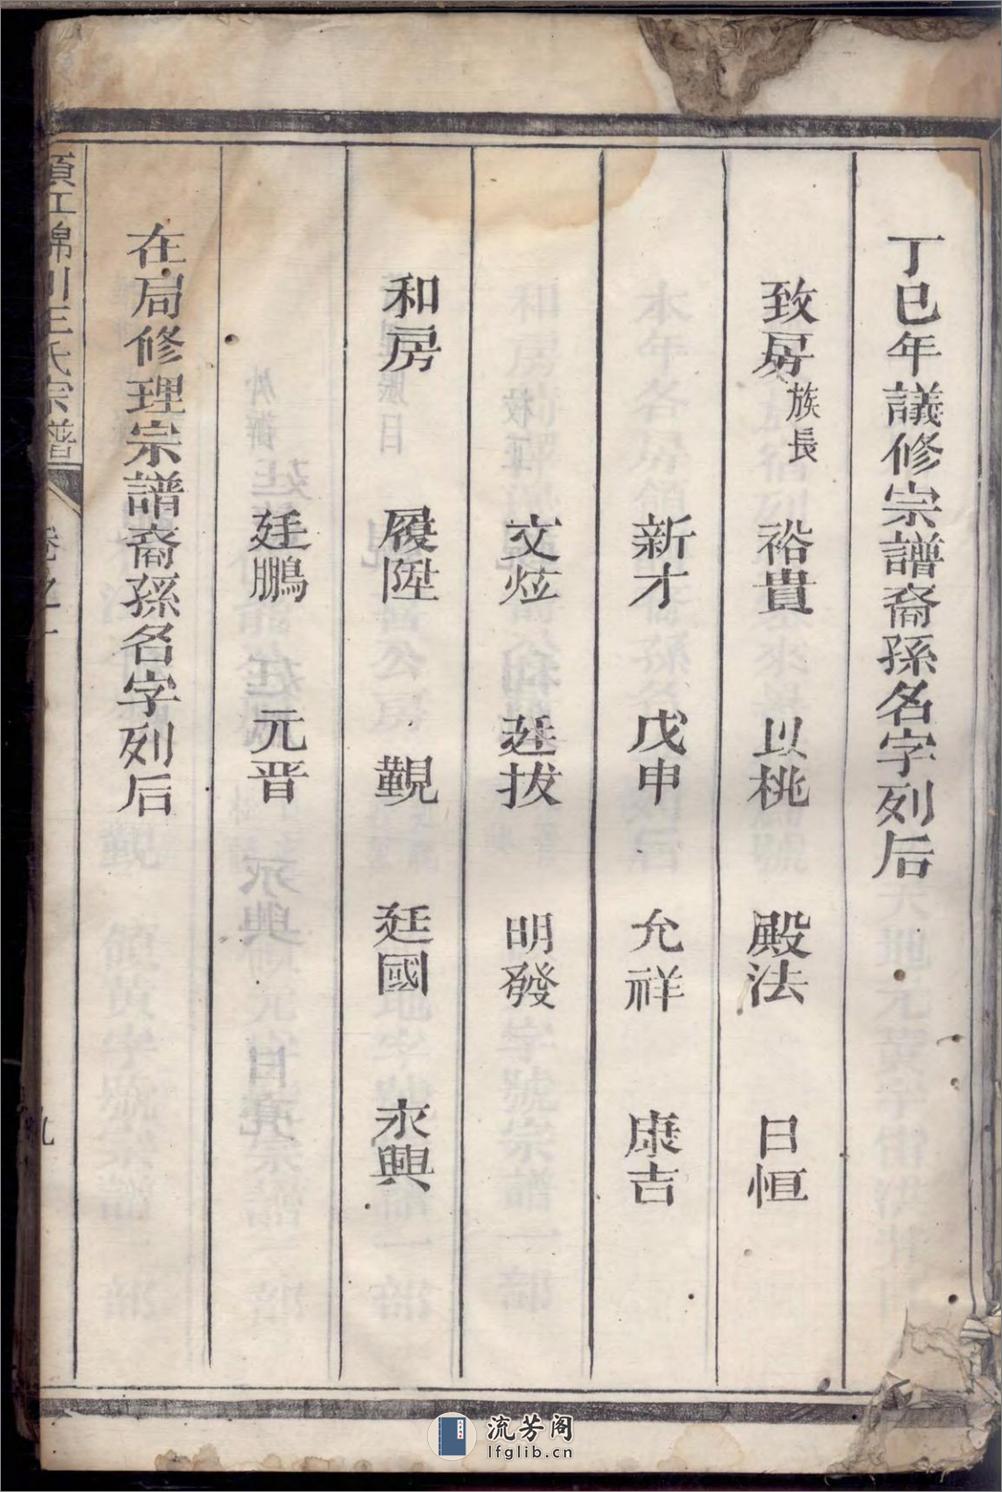 丁巳年議修宗譜裔孫名字列后
致房族長 裕貴 以桃 殿法 日恒
新才 戊申 允祥 康吉
文炫 廷拔 明發
和房 履陞 觐 廷國 永興
廷鵬 元晋
在局修理宗譜裔孫名字列后
須江錦川王氏宗譜 卷之一 九
流芳阁
lfglib.cn